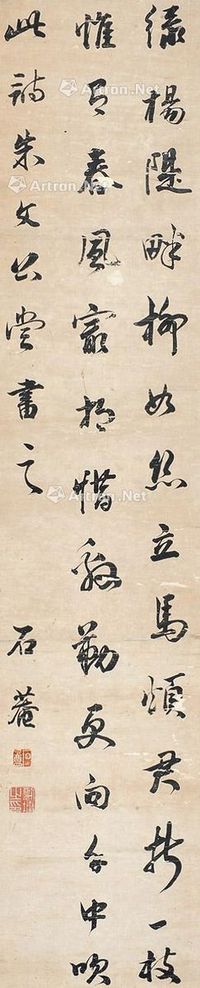 綠楊隄畔柳如絲立馬煩君折一枝
惟有春風寂相惜殷勤更向手中吹
此詩朱文公嘗書之 石菴
Artron.Net
Artron.Net
Artron.Net
Artron.Net